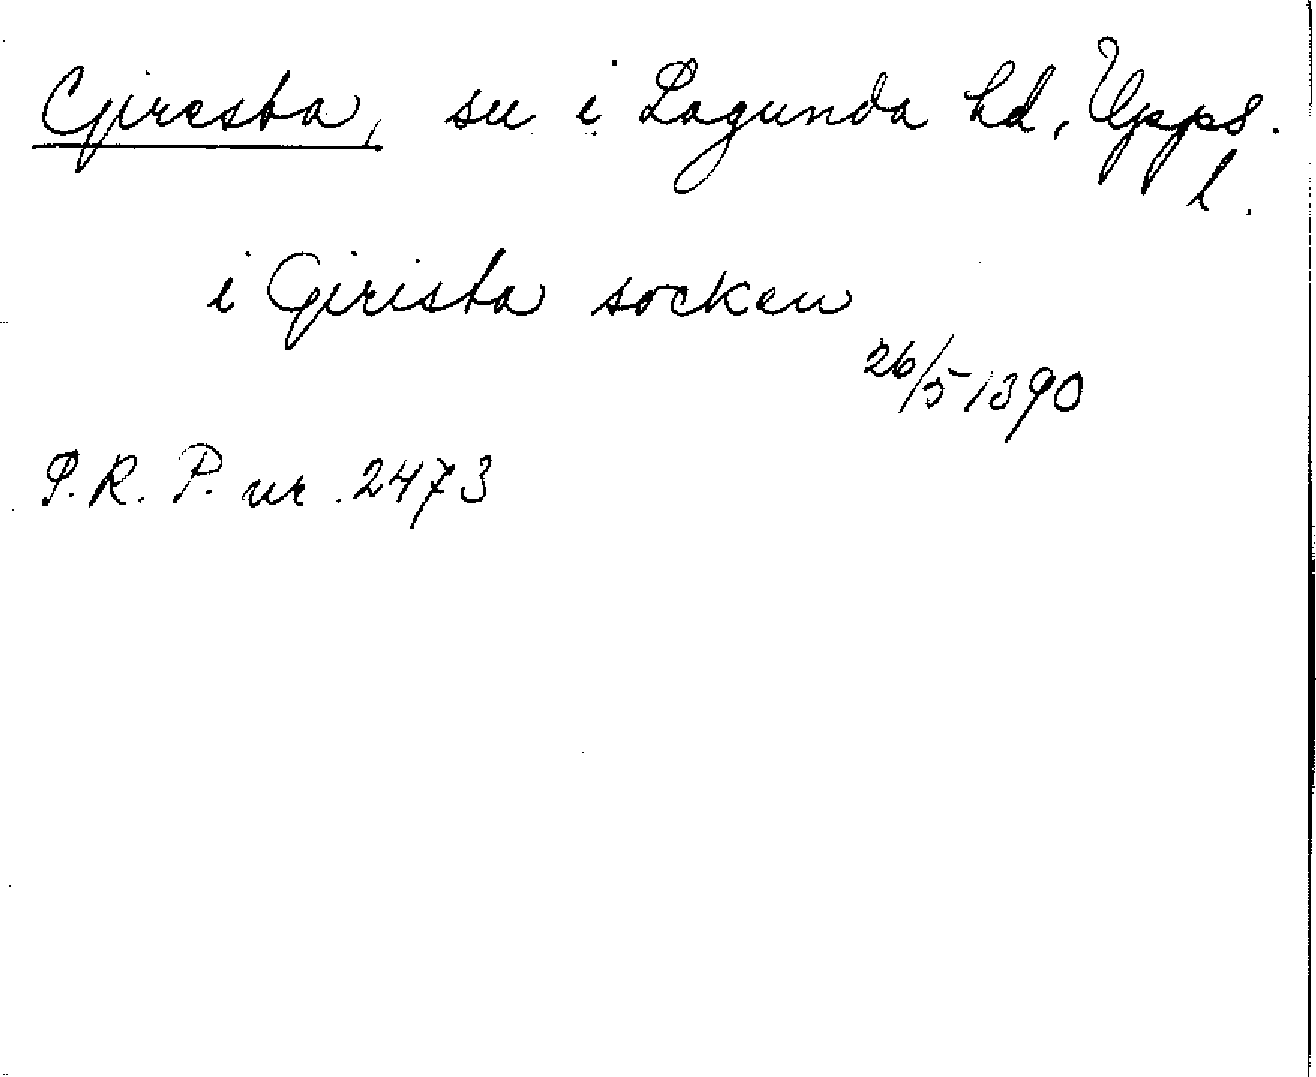 Giresta, sn i Lagunda hd, Upps.
l.
i Girista socken
26/5 1390
P.R.P. nr. 2473